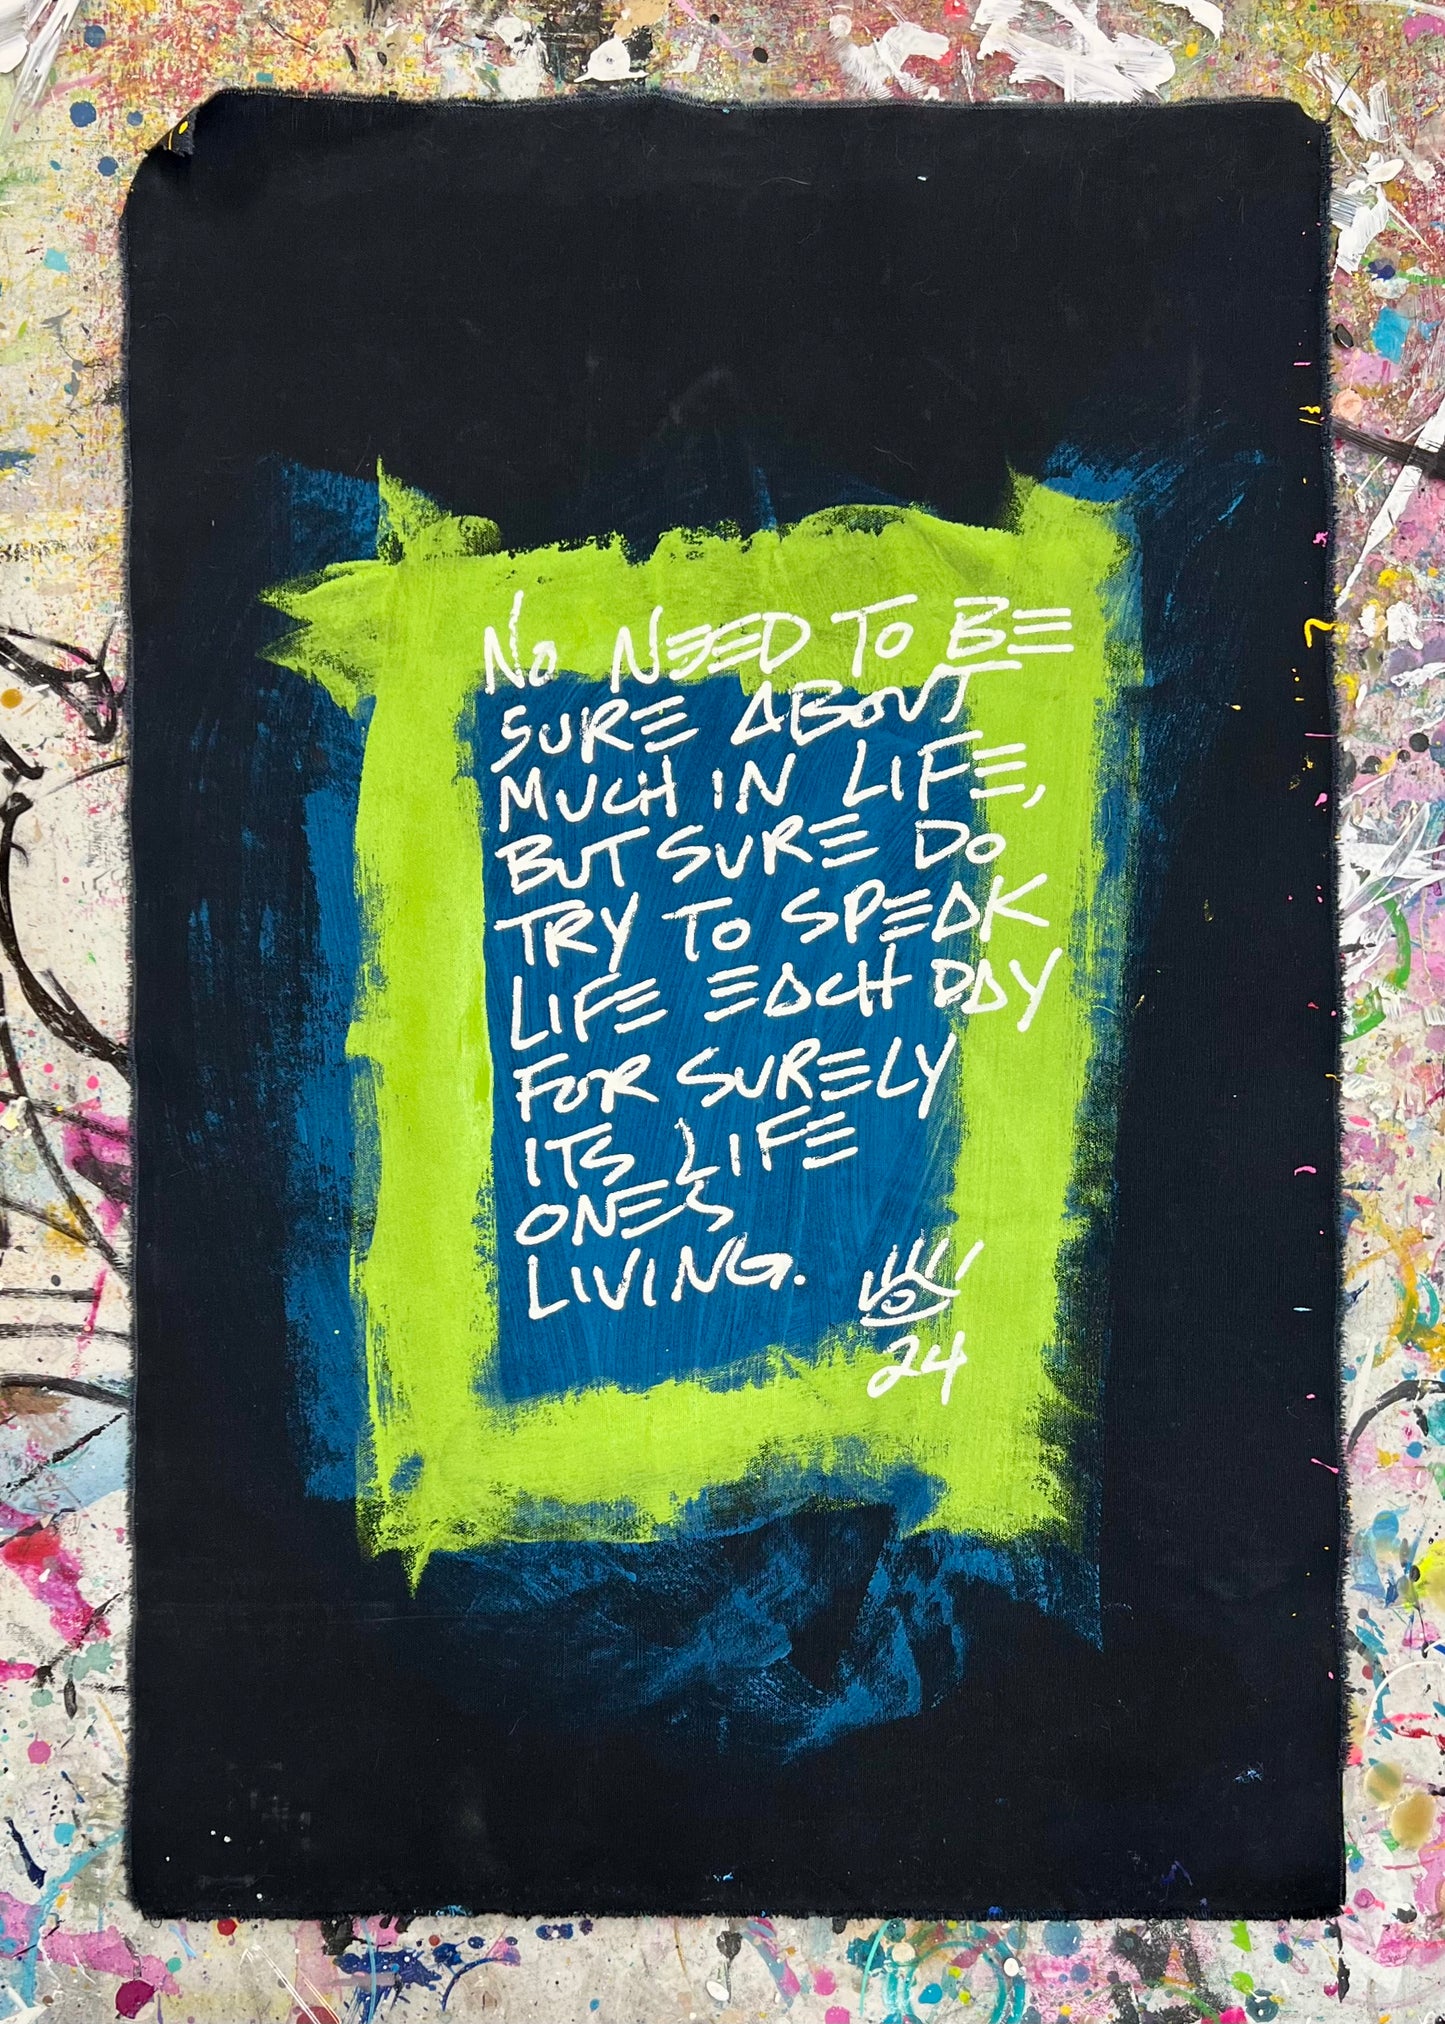 NO NEED TO BE
SURE ABOUT
MUCH IN LIFE,
BUT SURE DO
TRY TO SPEAK
LIFE EACH DAY
FOR SURELY
ITS LIFE
ONES
LIVING.
24